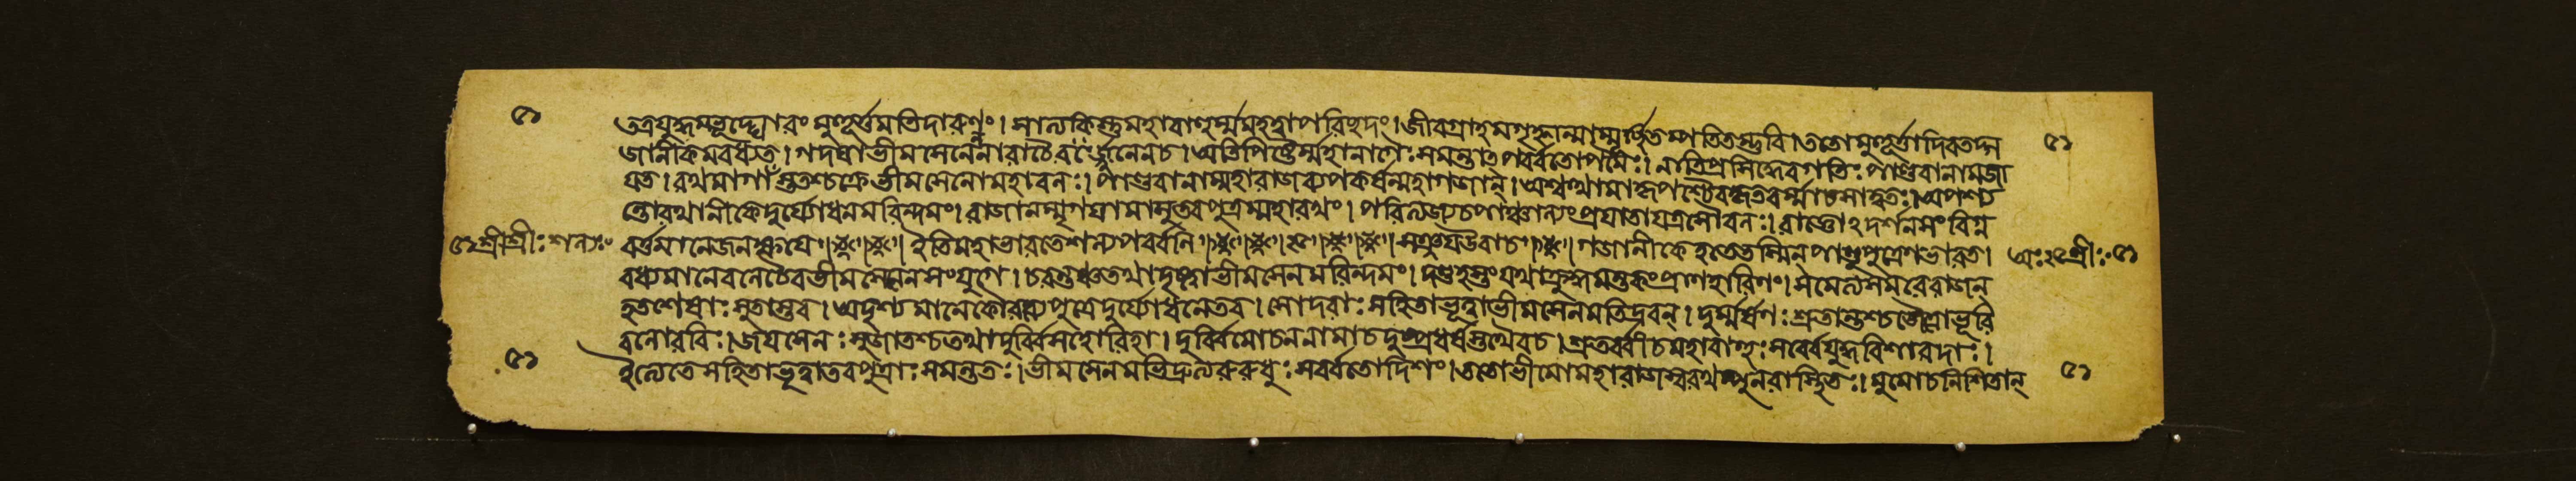 ৫১ তত্রযুদ্ধমভূদ্ঘোরং মুহূর্ত্তমতিদারুণং। সাত্যকিস্তুমহাবাহুর্ম্মমহত্বাপরিচ্ছদং। জীবগ্রাহমগৃহ্ণান্মাম্মূর্চ্ছিতম্পতিতম্ভুবি। ততোমুহূর্ত্তাদিবতদ্গ ৫১
জানীকমবধ্যত। গদযাভীমসেনেননারাচৈরর্জ্জুনেনচ। অতিপিষ্টৈর্ম্মহানাগৈঃসমন্তাৎপর্ব্বতোপমৈঃ। নাতিপ্রসিদ্ধেবগতিঃপাণ্ডবানামজা
যত। রথমার্গাঁস্ততশ্চক্রেভীমসেনোমহাবলঃ। পাণ্ডবানাম্মহারাজব্যপকর্ষন্মহাগজান্। অশ্বত্থামাকৃপশ্চৈবকৃতবর্ম্মাচসাত্বতঃ। অপশ্য
ন্তোরথানীকেদুর্য্যোধনমরিন্দমং। রাজানম্মৃগযামাসুস্তবপুত্রম্মহারথং। পরিত্যজ্যচপাঞ্চাল্যংপ্রযাতাযত্রসৌবলঃ। রাজ্ঞোঽদর্শনসংবিগ্ন
৫১শ্রীশ্রীঃশল্যঃ বর্ত্তমানেজনক্ষযে। ইতিমহাভারতেশল্যপর্ব্বণি। সঞ্জযউবাচ। গজানীকেহতেতস্মিন্পাণ্ডুপুত্রেণভারত। অঃ২৫শ্রীঃ৫১
বধ্যমানেবলেচৈবভীমসেনেনসংযুগে। চরন্তঞ্চতথাদৃষ্ট্বাভীমসেনমরিন্দমং। দণ্ডহস্তংযথাক্রুদ্ধমন্তকংপ্রাণহারিণং। সমেত্যসমরেরাজন্
হতশেষাঃসুতাস্তব। অদৃশ্যমানেকৌরব্যপুত্রেদুর্য্যোধনেতব। সোদরাঃসহিতাভূত্বাভীমসেনমতিদ্রবন্। দুর্ম্মর্ষণঃশ্রুতান্তশ্চজৈত্রোভূরি
বলোরবিঃ। জযসেনঃসুজাতশ্চতথাদুর্ব্বিসহোরিহা। দুর্ব্বিমোচননামাচদুষ্প্রধর্ষস্তথৈবচ। শ্রুতর্ব্বাচমহাবাহুঃসর্ব্বেযুদ্ধবিশারদাঃ।
৫১ ইত্যেতেসহিতাভূত্বাতবপুত্রাঃসমন্ততঃ। ভীমসেনমভিদ্রুত্যরুরুধুঃসর্ব্বতোদিশং। ততোভীমোমহারাজস্বরথম্পুনরাস্থিতঃ। মুমোচনিশিতান্ ৫১